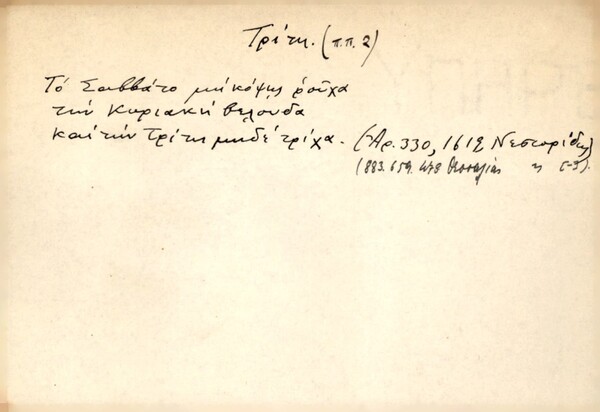 Τρίτη. (π.π. 2)
Τό Σαββάτο μή κόψης ῥοῦχα
τήν Κυριακή βελούδα
καί τήν Τρίτη μηδέ τρίχα. (Ἀρ. 330, 1619 Νεστορίδης)
(883. 659. 478 Θεσσαλίας